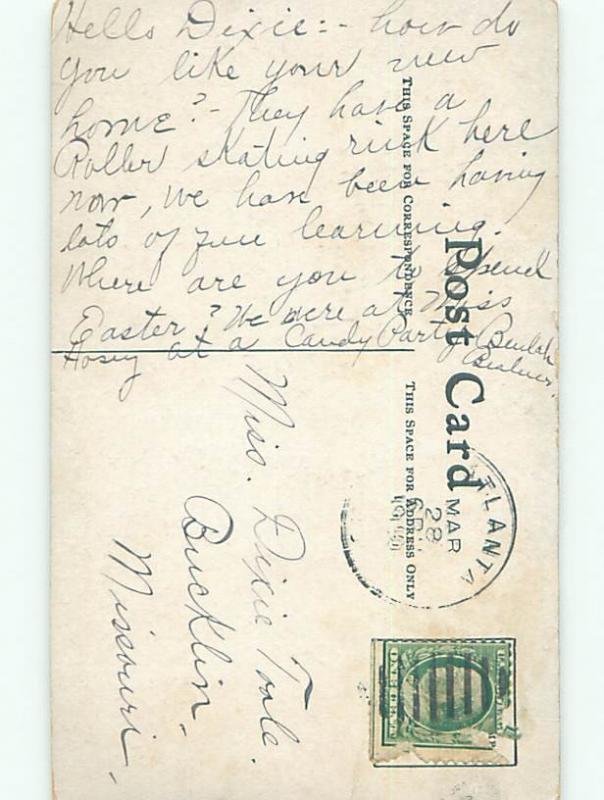 Hello Dixie:- how do
you like your new
home?- They have a
Roller skating rink here
now, we have been having
lots of fun learning.
Where are you to spend
Easter? We were at Miss
at a Candy Party. Beulah
Post Card
THIS SPACE FOR CORRESPONDENCE
THIS SPACE FOR ADDRESS ONLY
Miss. Dixie Toole.
Bucklin,
Missouri,
ATLANTA
MAR
28